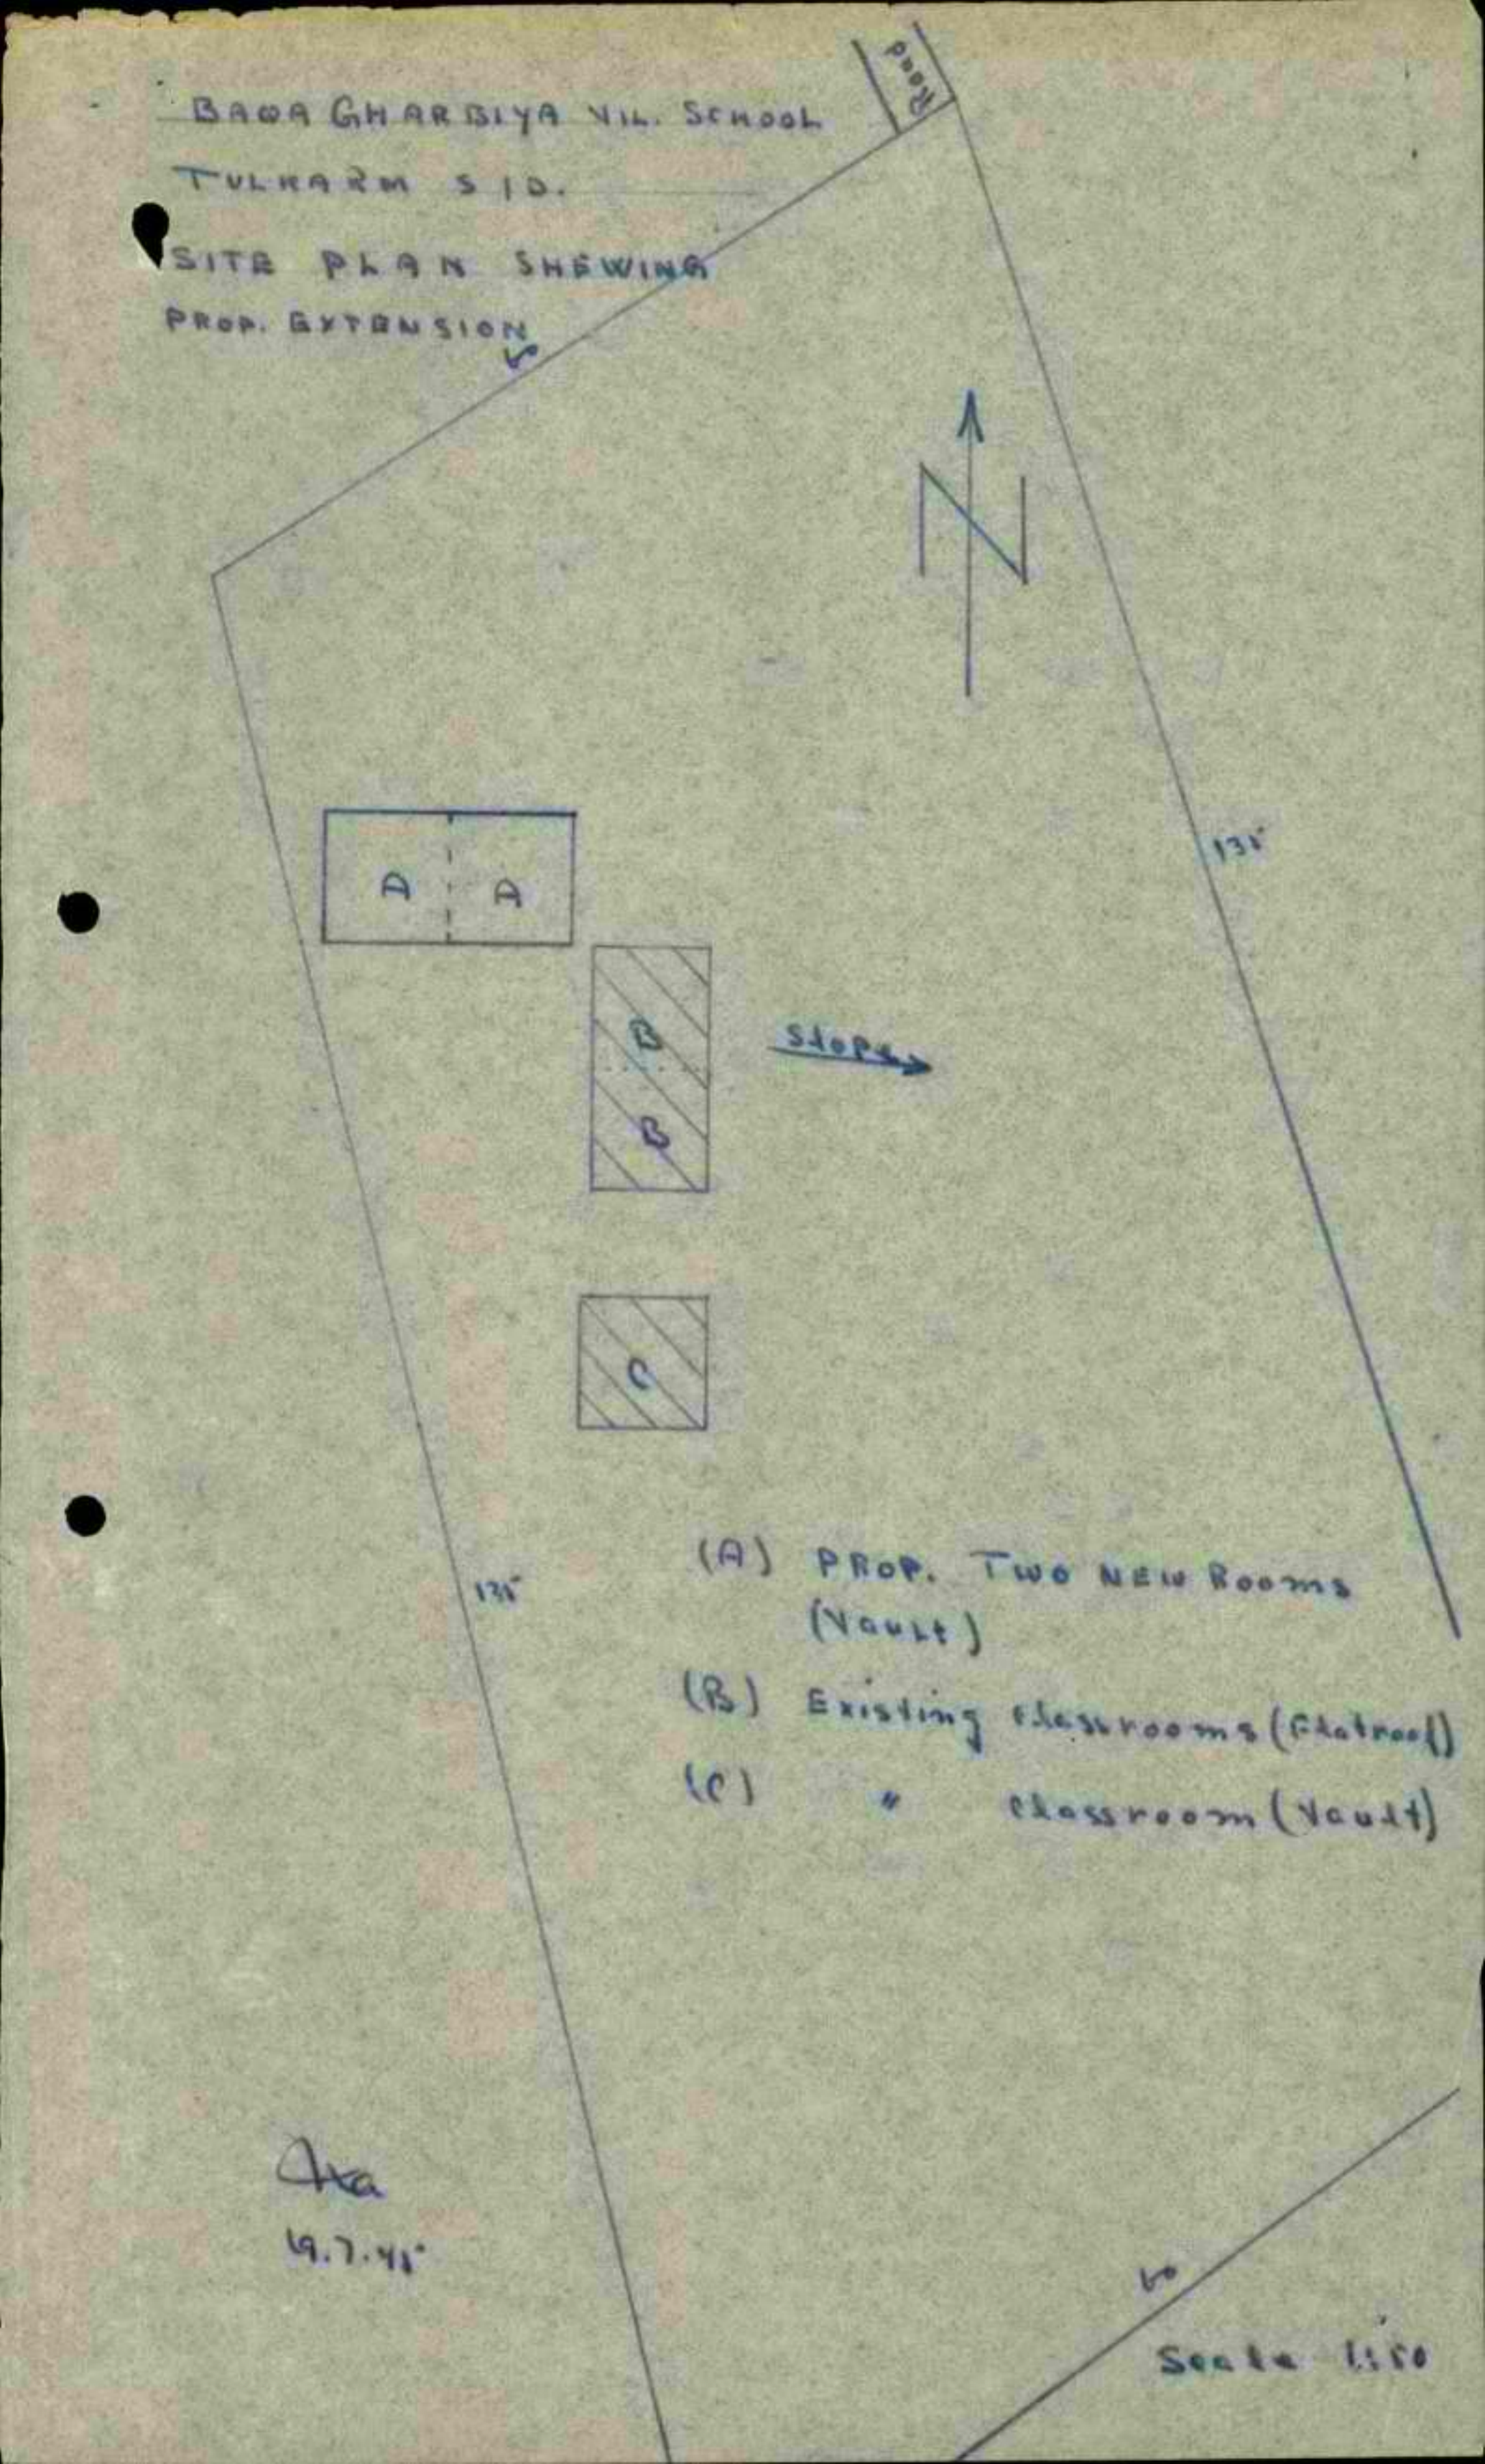 Road
BAQA GHARBIYA VIL. SCHOOL
TULKARM S/D.
SITE PLAN SHEWING
PROP. EXTENSION
N
135
A A
B
Slope
B
C
(A) PROP. TWO NEW ROOMS
(Vault)
135
(B) Existing classrooms (Flatroof)
(C) " classroom (Vault)
19.7.45
Scale 1:50